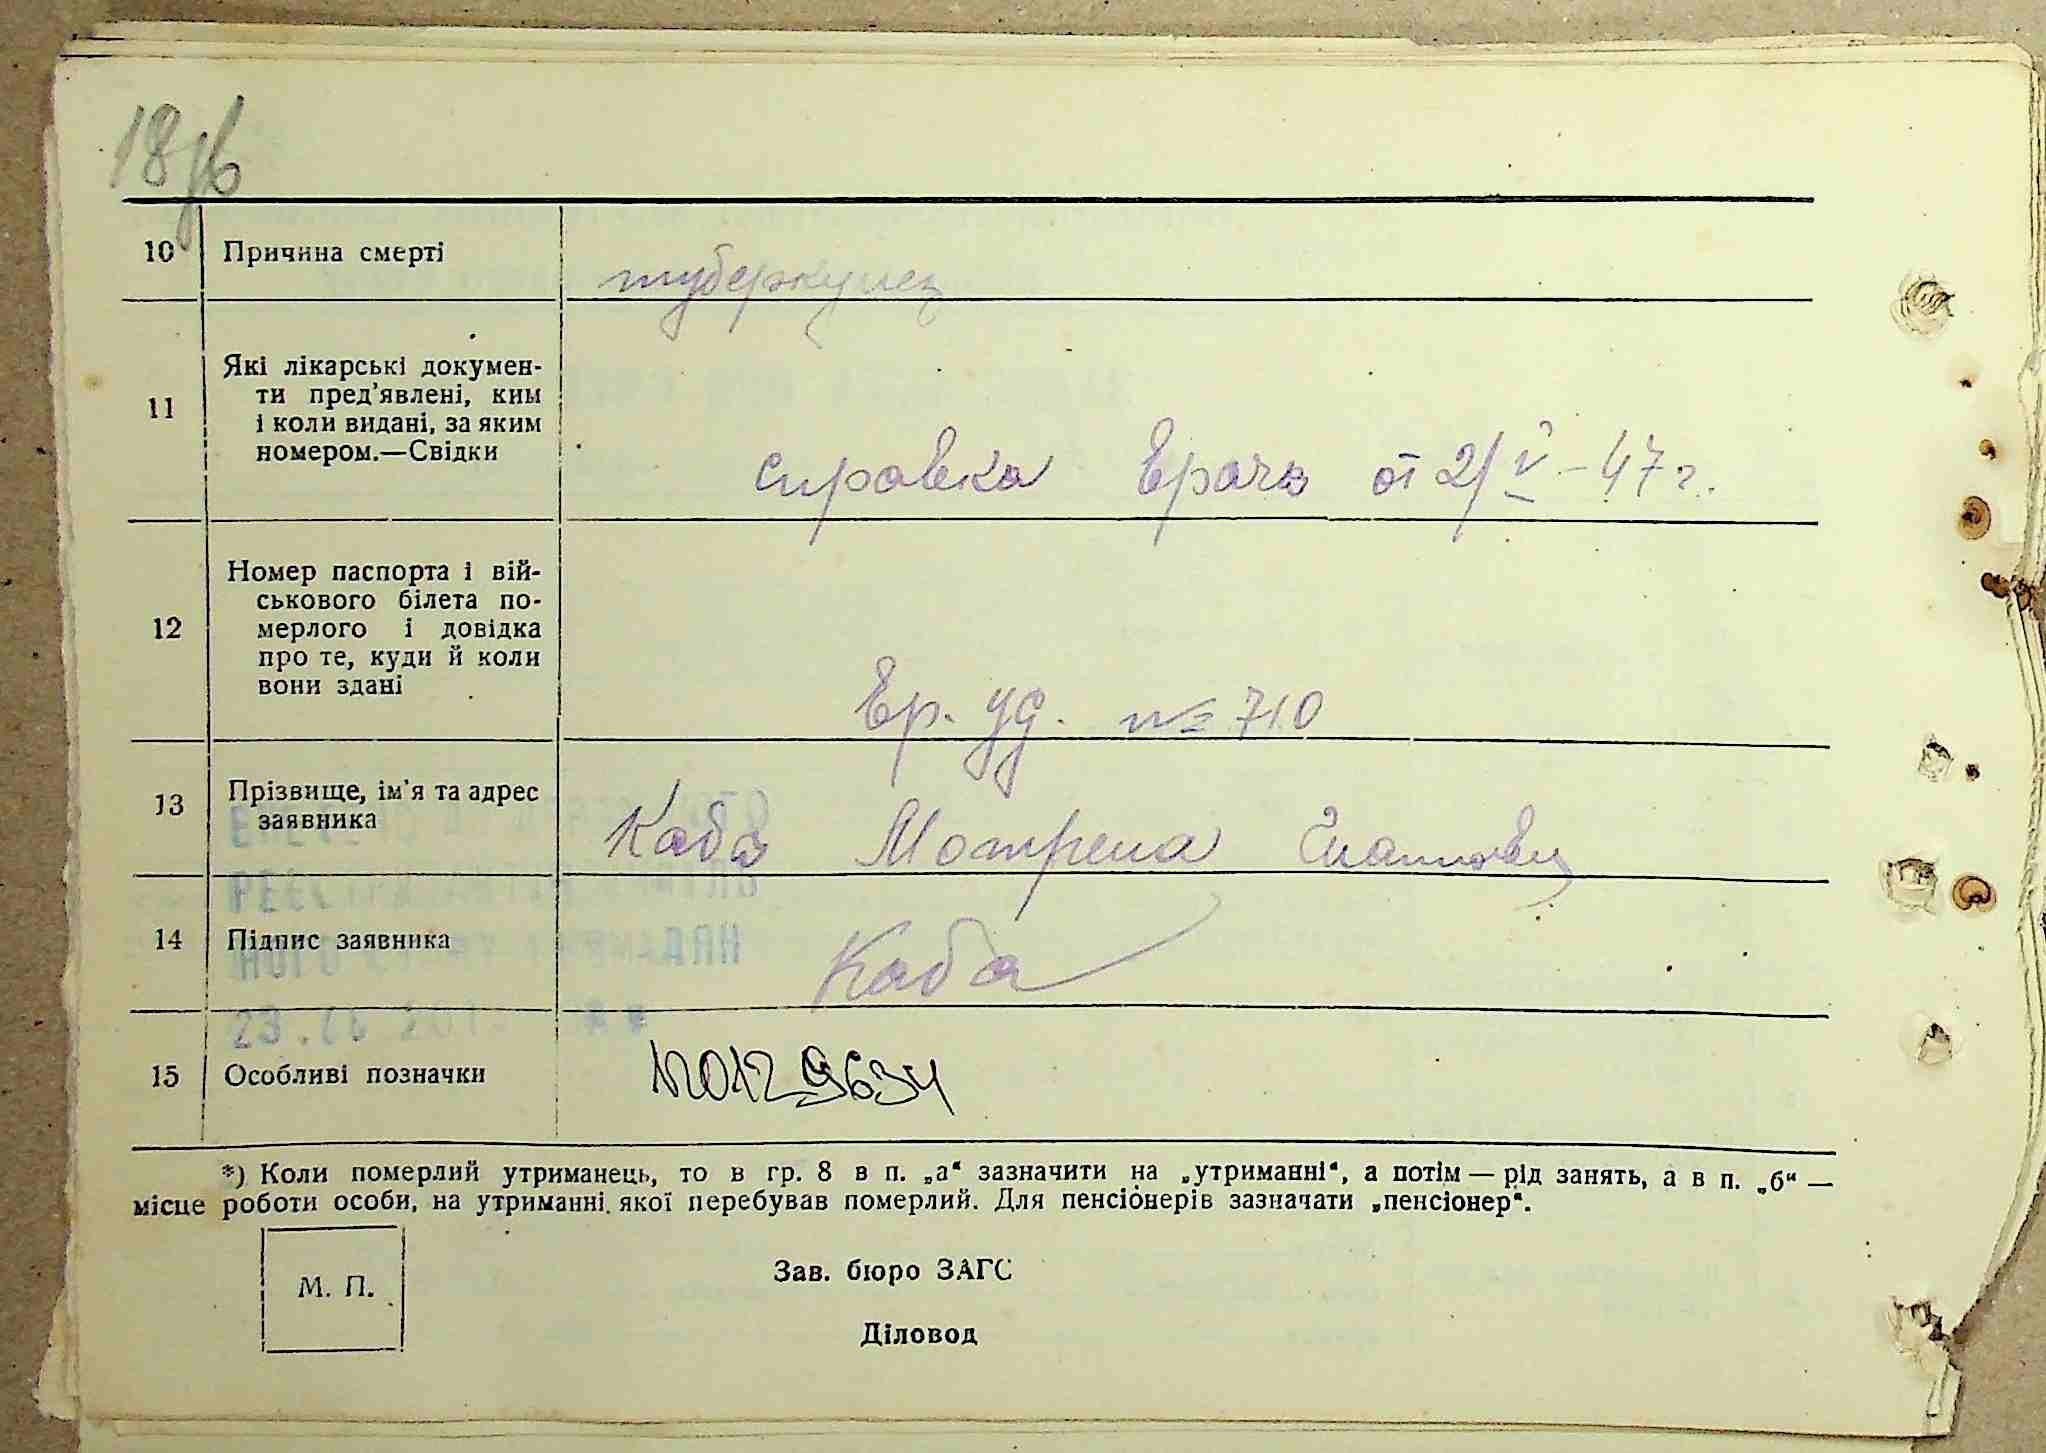 10 Причина смерті
туберкулез
11 Які лікарські докумен-
ти пред'явлені, ким
і коли видані, за яким
номером.—Свідки
справка врача от 2/V – 47 г.
12 Номер паспорта і вій-
ськового білета по-
мерлого і довідка
про те, куди й коли
вони здані
Вр. уд. № 710
13 Прізвище, ім'я та адрес
заявника
Каба Мотрена
14 Підпис заявника
Каба
15 Особливі позначки
№0129634
*) Коли померлий утриманець, то в гр. 8 в п. „а“ зазначити на „утриманні“, а потім — рід занять, а в п. „б“ —
місце роботи особи, на утриманні якої перебував померлий. Для пенсіонерів зазначати „пенсіонер“.
М. П.
Зав. бюро ЗАГС
Діловод